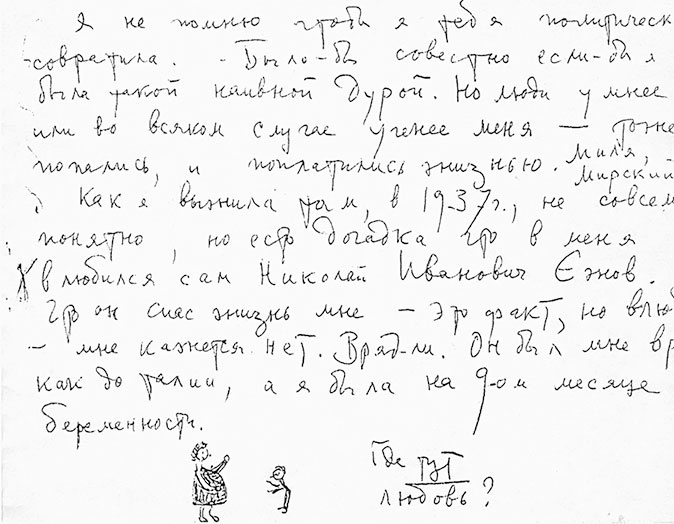 Я не помню чтобы я тебя политическ
совратила. - Было-бы совестно если-бы я
была такой наивной Дурой. Но люди умнее
или во всяком случае ученее меня — тоже
попались, и поплатились жизнью. Миля,
Мирский
Как я выжила там, в 1937г., не совсем
понятно, но есть догадка что в меня
влюбился сам Николай Иванович Ежов.
Что он спас жизнь мне — это факт, но влюб
— мне кажется нет. Вряд-ли. Он был мне вр
как до талии, а я была на 9-ом месяце
беременности.
Где тут
любовь?